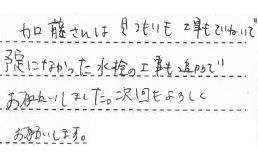 加藤さんは見つもりも工事もていねいで
予定になかった水栓の工事も追加で
お願いしました。次回もよろしく
お願いします。